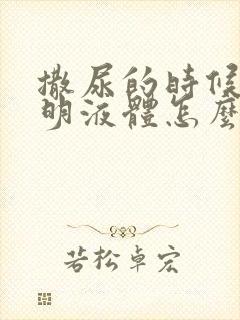 撒尿的時候
明液體怎麼
若松卓宏